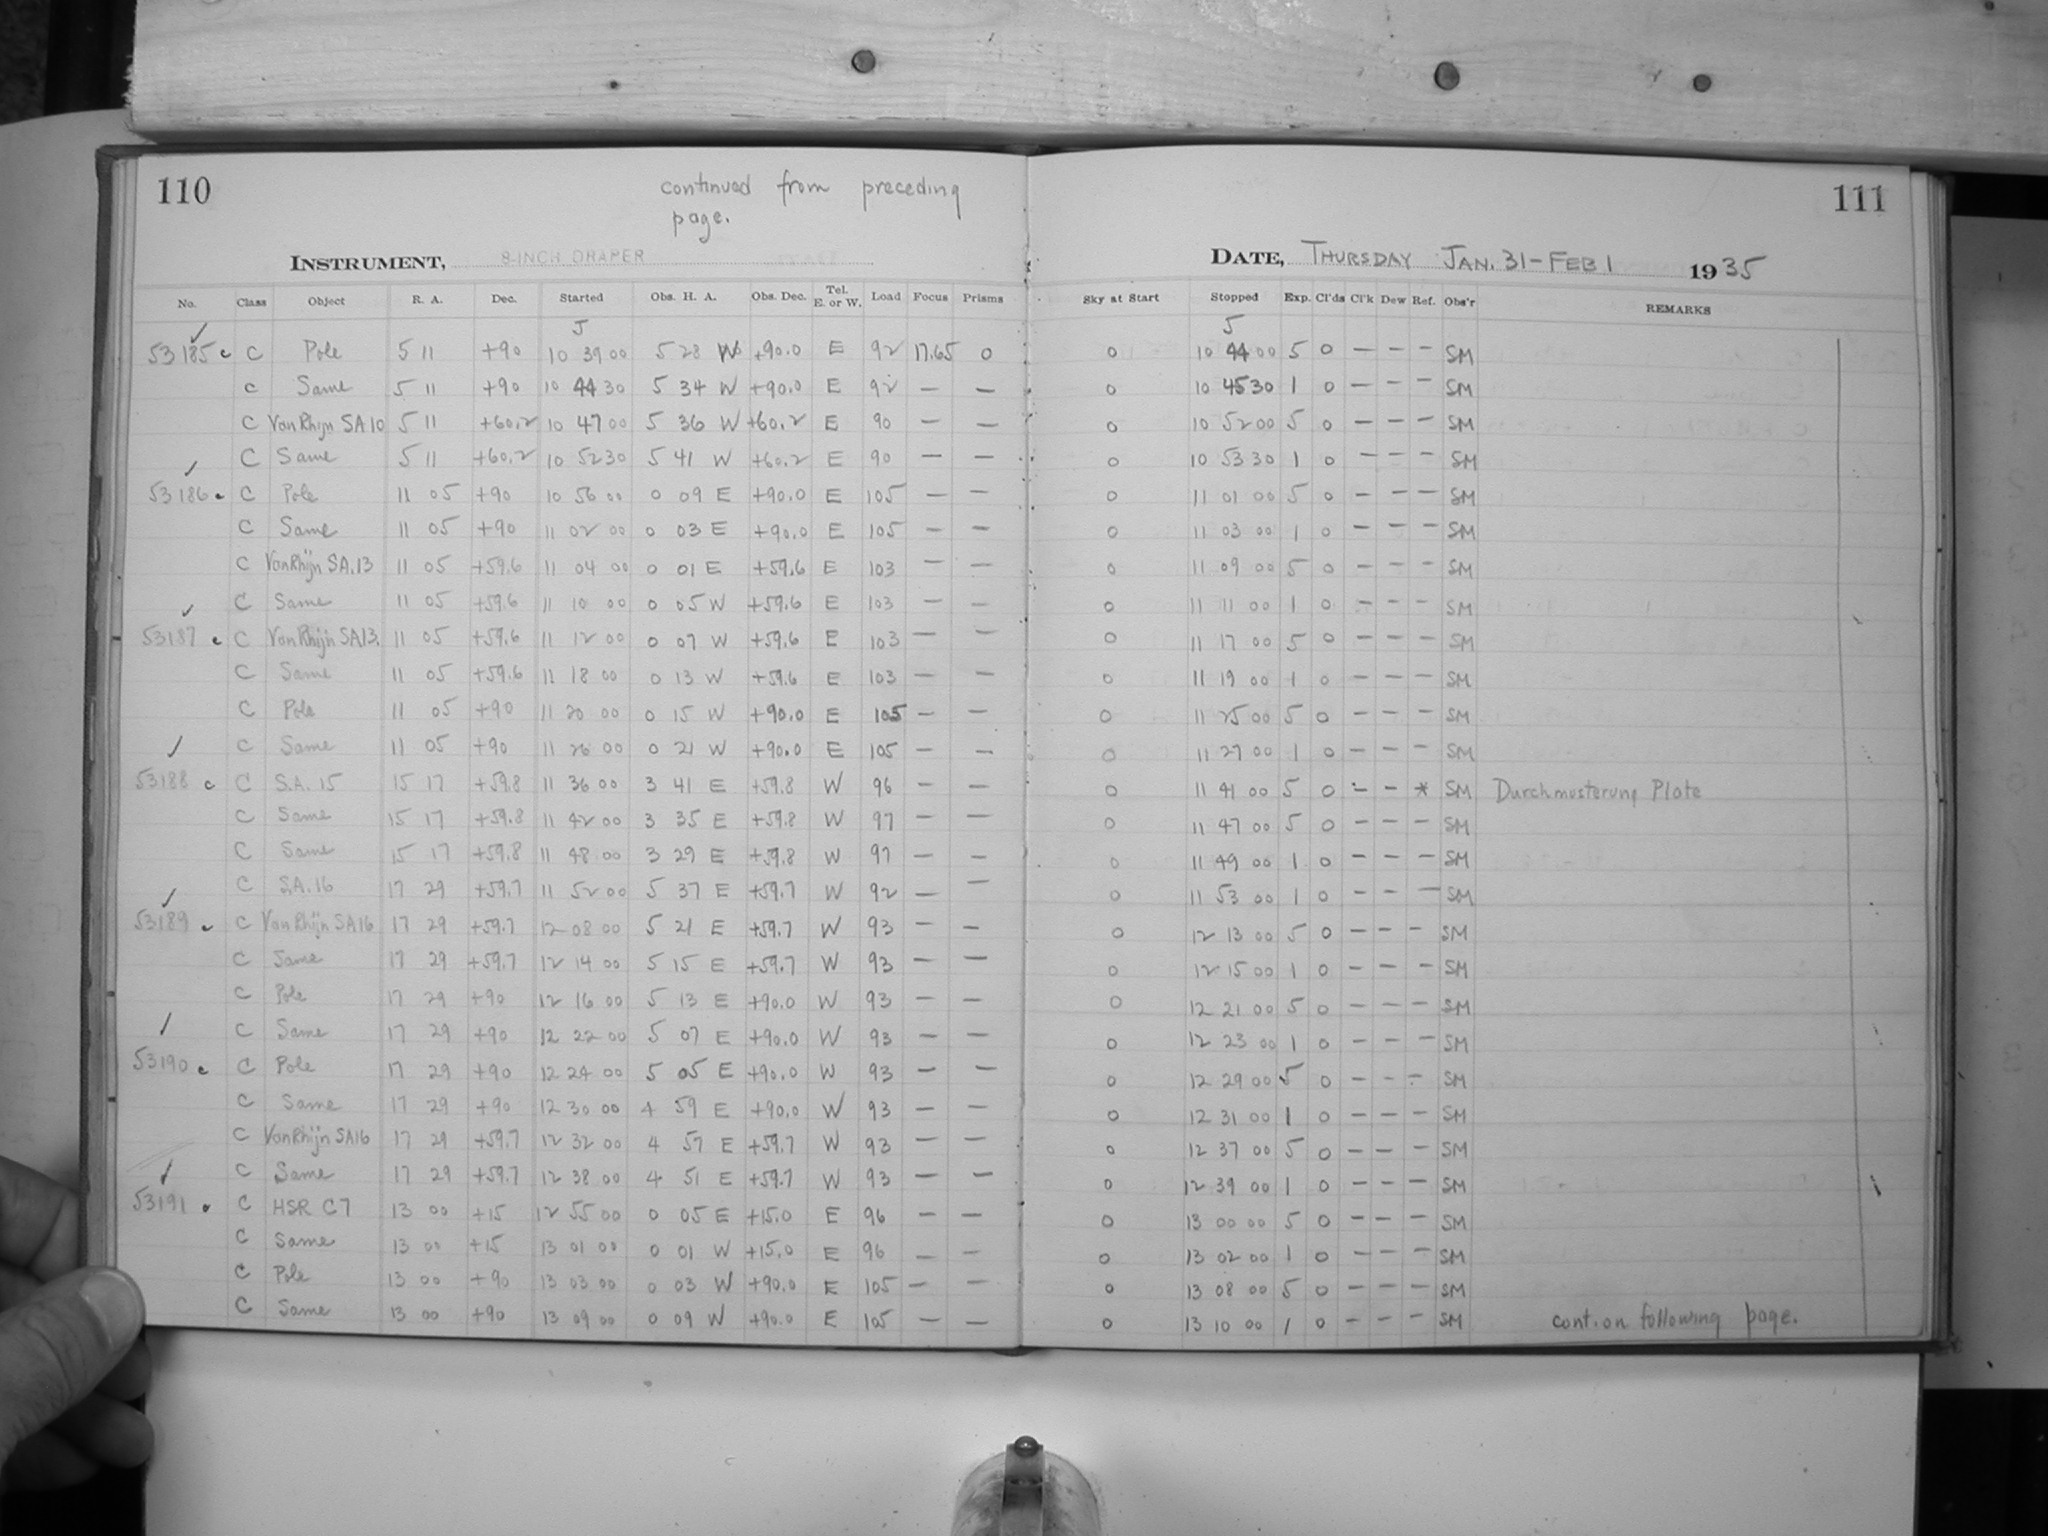 110
continued from preceding
page.
INSTRUMENT, 8-INCH DRAPER
DATE, THURSDAY JAN. 31-FEB 1 1935
111
No. Class Object R. A. Dec. Started Obs. H. A. Obs. Dec. Tel. E. or W. Load Focus Prisms Sky at Start Stopped Exp. Cl'ds Cl'k Dew Ref. Obs'r REMARKS
53185 c C Pole 5 11 +90 10 39 00 5 28 W +90.0 E 92 17.65 0 0 10 44 00 5 0 — — — SM
C Same 5 11 +90 10 44 30 5 34 W +90.0 E 92 — — 0 10 45 30 1 0 — — — SM
C Van Rhijn SA 10 5 11 +60.2 10 47 00 5 36 W +60.2 E 90 — — 0 10 52 00 5 0 — — — SM
C Same 5 11 +60.2 10 52 30 5 41 W +60.2 E 90 — — 0 10 53 30 1 0 — — — SM
53186 c C Pole 11 05 +90 10 56 00 0 09 E +90.0 E 105 — — 0 11 01 00 5 0 — — — SM
C Same 11 05 +90 11 02 00 0 03 E +90.0 E 105 — — 0 11 03 00 1 0 — — — SM
C Van Rhijn SA.13 11 05 +59.6 11 04 00 0 01 E +59.6 E 103 — — 0 11 09 00 5 0 — — — SM
C Same 11 05 +59.6 11 10 00 0 05 W +59.6 E 103 — — 0 11 11 00 1 0 — — — SM
53187 c C Van Rhijn SA13. 11 05 +59.6 11 12 00 0 07 W +59.6 E 103 — — 0 11 17 00 5 0 — — — SM
C Same 11 05 +59.6 11 18 00 0 13 W +59.6 E 103 — — 0 11 19 00 1 0 — — — SM
C Pole 11 05 +90 11 20 00 0 15 W +90.0 E 105 — — 0 11 25 00 5 0 — — — SM
C Same 11 05 +90 11 26 00 0 21 W +90.0 E 105 — — 0 11 27 00 1 0 — — — SM
53188 c C S.A. 15 15 17 +59.8 11 36 00 3 41 E +59.8 W 96 — — 0 11 41 00 5 0 — — * SM Durchmusterung Plate
C Same 15 17 +59.8 11 42 00 3 35 E +59.8 W 97 — — 0 11 47 00 5 0 — — — SM
C Same 15 17 +59.8 11 48 00 3 29 E +59.8 W 97 — — 0 11 49 00 1 0 — — — SM
C S.A. 16 17 29 +59.7 11 52 00 5 37 E +59.7 W 92 — — 0 11 53 00 1 0 — — — SM
53189 c C Van Rhijn SA16 17 29 +59.7 12 08 00 5 21 E +59.7 W 93 — — 0 12 13 00 5 0 — — — SM
C Same 17 29 +59.7 12 14 00 5 15 E +59.7 W 93 — — 0 12 15 00 1 0 — — — SM
C Pole 17 29 +90 12 16 00 5 13 E +90.0 W 93 — — 0 12 21 00 5 0 — — — SM
C Same 17 29 +90 12 22 00 5 07 E +90.0 W 93 — — 0 12 23 00 1 0 — — — SM
53190 c C Pole 17 29 +90 12 24 00 5 05 E +90.0 W 93 — — 0 12 29 00 5 0 — — — SM
C Same 17 29 +90 12 30 00 4 59 E +90.0 W 93 — — 0 12 31 00 1 0 — — — SM
C Van Rhijn SA16 17 29 +59.7 12 32 00 4 57 E +59.7 W 93 — — 0 12 37 00 5 0 — — — SM
C Same 17 29 +59.7 12 38 00 4 51 E +59.7 W 93 — — 0 12 39 00 1 0 — — — SM
53191 c C HSR C7 13 00 +15 12 55 00 0 05 E +15.0 E 96 — — 0 13 00 00 5 0 — — — SM
C Same 13 00 +15 13 01 00 0 01 W +15.0 E 96 — — 0 13 02 00 1 0 — — — SM
C Pole 13 00 +90 13 03 00 0 03 W +90.0 E 105 — — 0 13 08 00 5 0 — — — SM
C Same 13 00 +90 13 09 00 0 09 W +90.0 E 105 — — 0 13 10 00 1 0 — — — SM cont. on following page.